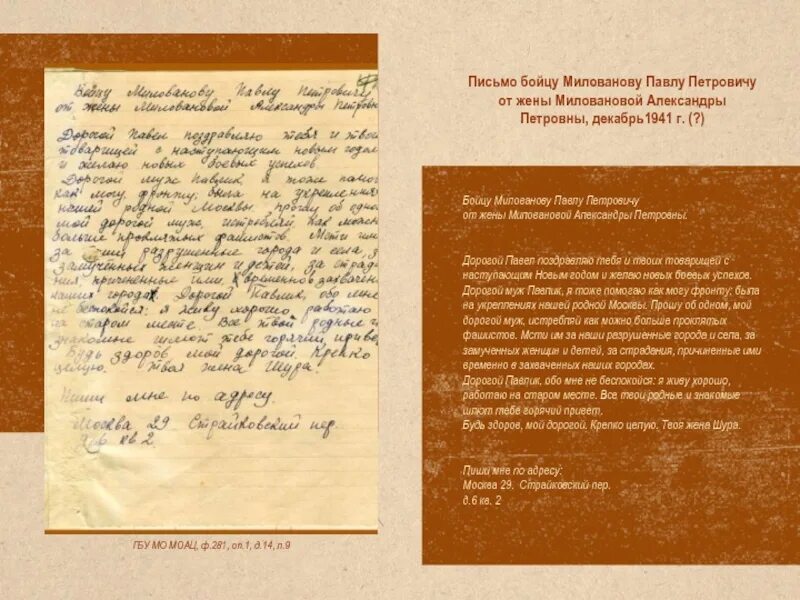 Бойцу Милованову Павлу Петровичу
от жены Миловановой Александры Петровны
Дорогой Павел поздравляю тебя и твоих
товарищей с наступающим новым годом
и желаю новых боевых успехов.
Дорогой муж Павлик, я тоже помогаю
как могу фронту; была на укреплениях
нашей родной Москвы. Прошу об одном
мой дорогой муж, истребляй как можно
больше проклятых фашистов. Мсти им
за наши разрушенные города и села, за
замученных женщин и детей, за страда-
ния, причиненные ими в временно захваченных
наших городах. Дорогой Павлик, обо мне
не беспокойся: я живу хорошо, работаю
на старом месте. Все твои родные и
знакомые шлют тебе горячий привет.
Будь здоров мой дорогой. Крепко
целую. Твоя жена Шура.
Пиши мне по адресу.
Москва 29 Страйковский пер.
д.6 кв 2
ГБУ МО МОАЦ, ф.281, оп.1, д.14, л.9
Письмо бойцу Милованову Павлу Петровичу
от жены Миловановой Александры
Петровны, декабрь1941 г. (?)
Бойцу Милованову Павлу Петровичу
от жены Миловановой Александры Петровны.
Дорогой Павел поздравляю тебя и твоих товарищей с
наступающим Новым годом и желаю новых боевых успехов.
Дорогой муж Павлик, я тоже помогаю как могу фронту; была
на укреплениях нашей родной Москвы. Прошу об одном, мой
дорогой муж, истребляй как можно больше проклятых
фашистов. Мсти им за наши разрушенные города и села, за
замученных женщин и детей, за страдания, причиненные ими
временно в захваченных наших городах.
Дорогой Павлик, обо мне не беспокойся: я живу хорошо,
работаю на старом месте. Все твои родные и знакомые
шлют тебе горячий привет.
Будь здоров, мой дорогой. Крепко целую. Твоя жена Шура.
Пиши мне по адресу:
Москва 29. Страйковский пер.
д.6 кв. 2